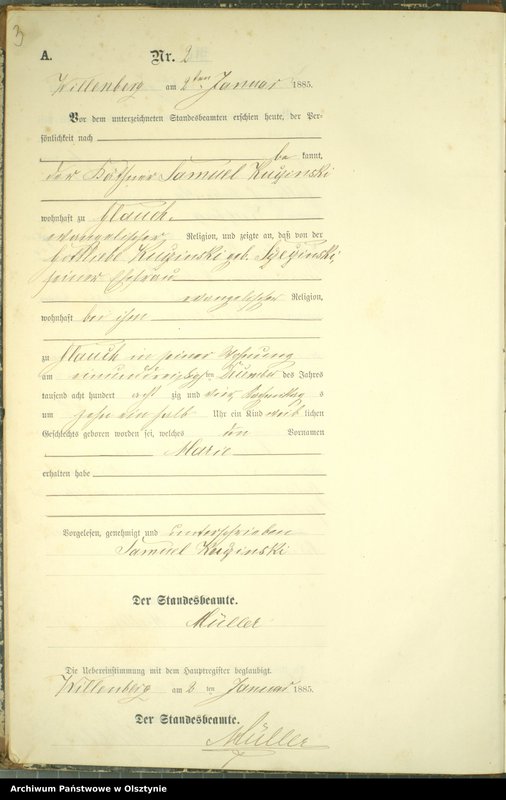 3
A. Nr. 2
Willenberg am 2ten Januar 1885.
Vor dem unterzeichneten Standesbeamten erschien heute, der Per-
sönlichkeit nach
be kannt,
der Käthner Samuel
wohnhaft zu Mauch
evangelischer Religion, und zeigte an, daß von der
geb.
seiner Ehefrau
evangelischer Religion,
wohnhaft bei ihm
zu Mauch in seiner Wohnung
am des Jahres
tausend acht hundert acht zig und vier s
um zehn ein halb Uhr ein Kind weib lichen
Geschlechts geboren worden sei, welches den Vornamen
Marie
erhalten habe
Vorgelesen, genehmigt und unterschrieben
Samuel
Der Standesbeamte.
Müller
Die Uebereinstimmung mit dem Hauptregister beglaubigt.
Willenberg am 2 ten Januar 1885.
Der Standesbeamte.
Müller
Archiwum Państwowe w Olsztynie